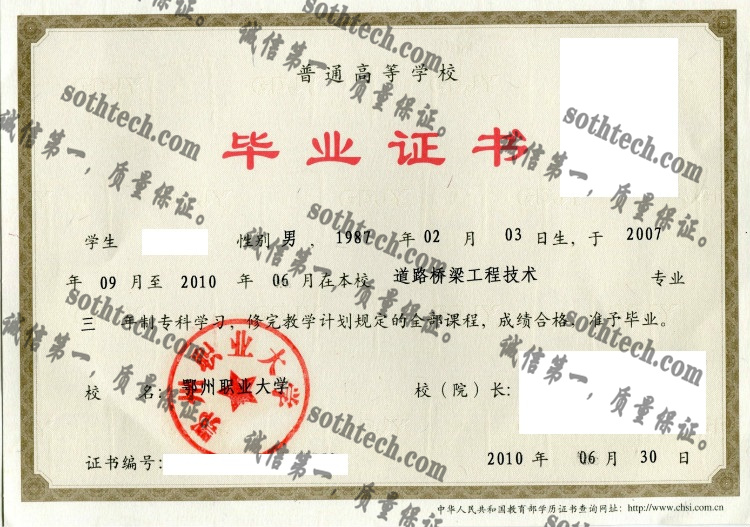 普通高等学校
毕业证书
学生 性别 男 , 1987 年 02 月 03 日生, 于 2007
年 09 月至 2010 年 06 月在本校 道路桥梁工程技术 专业
三 年制专科学习, 修完教学计划规定的全部课程, 成绩合格, 准予毕业。
校 名: 鄂州职业大学 校（院）长:
鄂州职业大学
证书编号: 2010 年 06 月 30 日
中华人民共和国教育部学历证书查询网址: http://www.chsi.com.cn
sothtech.com
诚信第一，质量保证。
sothtech.com
诚信第一，质量保证。
sothtech.com
诚信第一，质量保证。
sothtech.com
诚信第一，质量保证。
sothtech.com
诚信第一，质量保证。
sothtech.com
诚信第一，质量保证。
sothtech.com
诚信第一，质量保证。
sothtech.com
诚信第一，质量保证。